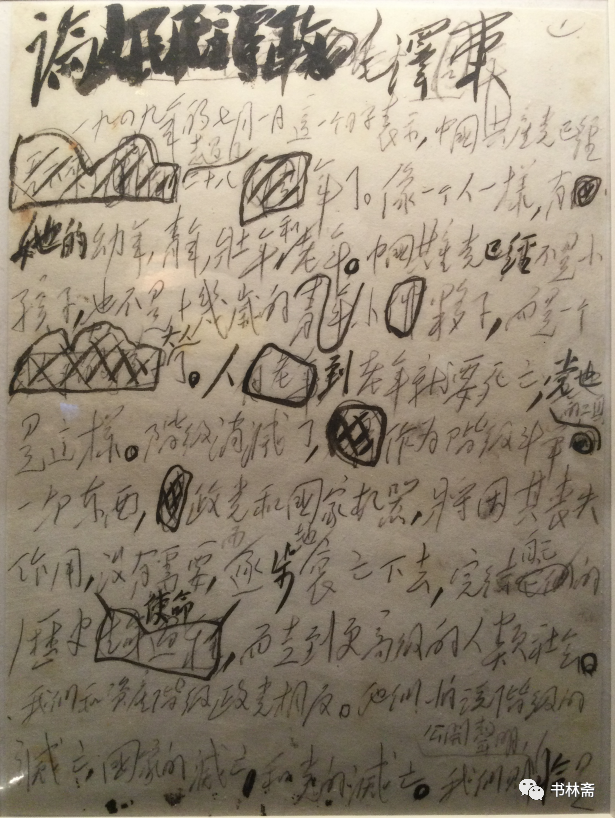 論人民民主專政 毛澤東
一九四九年的七月一日這一个日子表示,中國共產党已經
走過二十八年了。像一个人一樣,有
她的幼年,青年,壯年和老年。中國共產党已經不是小
孩子,也不是十幾歲的年小夥子,而是一个
大人了。人到老年就要死亡,党也
是這樣。階級消滅了,作为階級鬥爭的工具的
一切东西,政党和國家机器,將因其丧失
作用,沒有需要,而逐步地衰亡下去,完結自己的
歷史使命,而走到更高級的人類社会。
我們和资產階級政党相反。他們怕說階級的
消滅,國家的滅亡,和党的滅亡。我們則公開聲明,